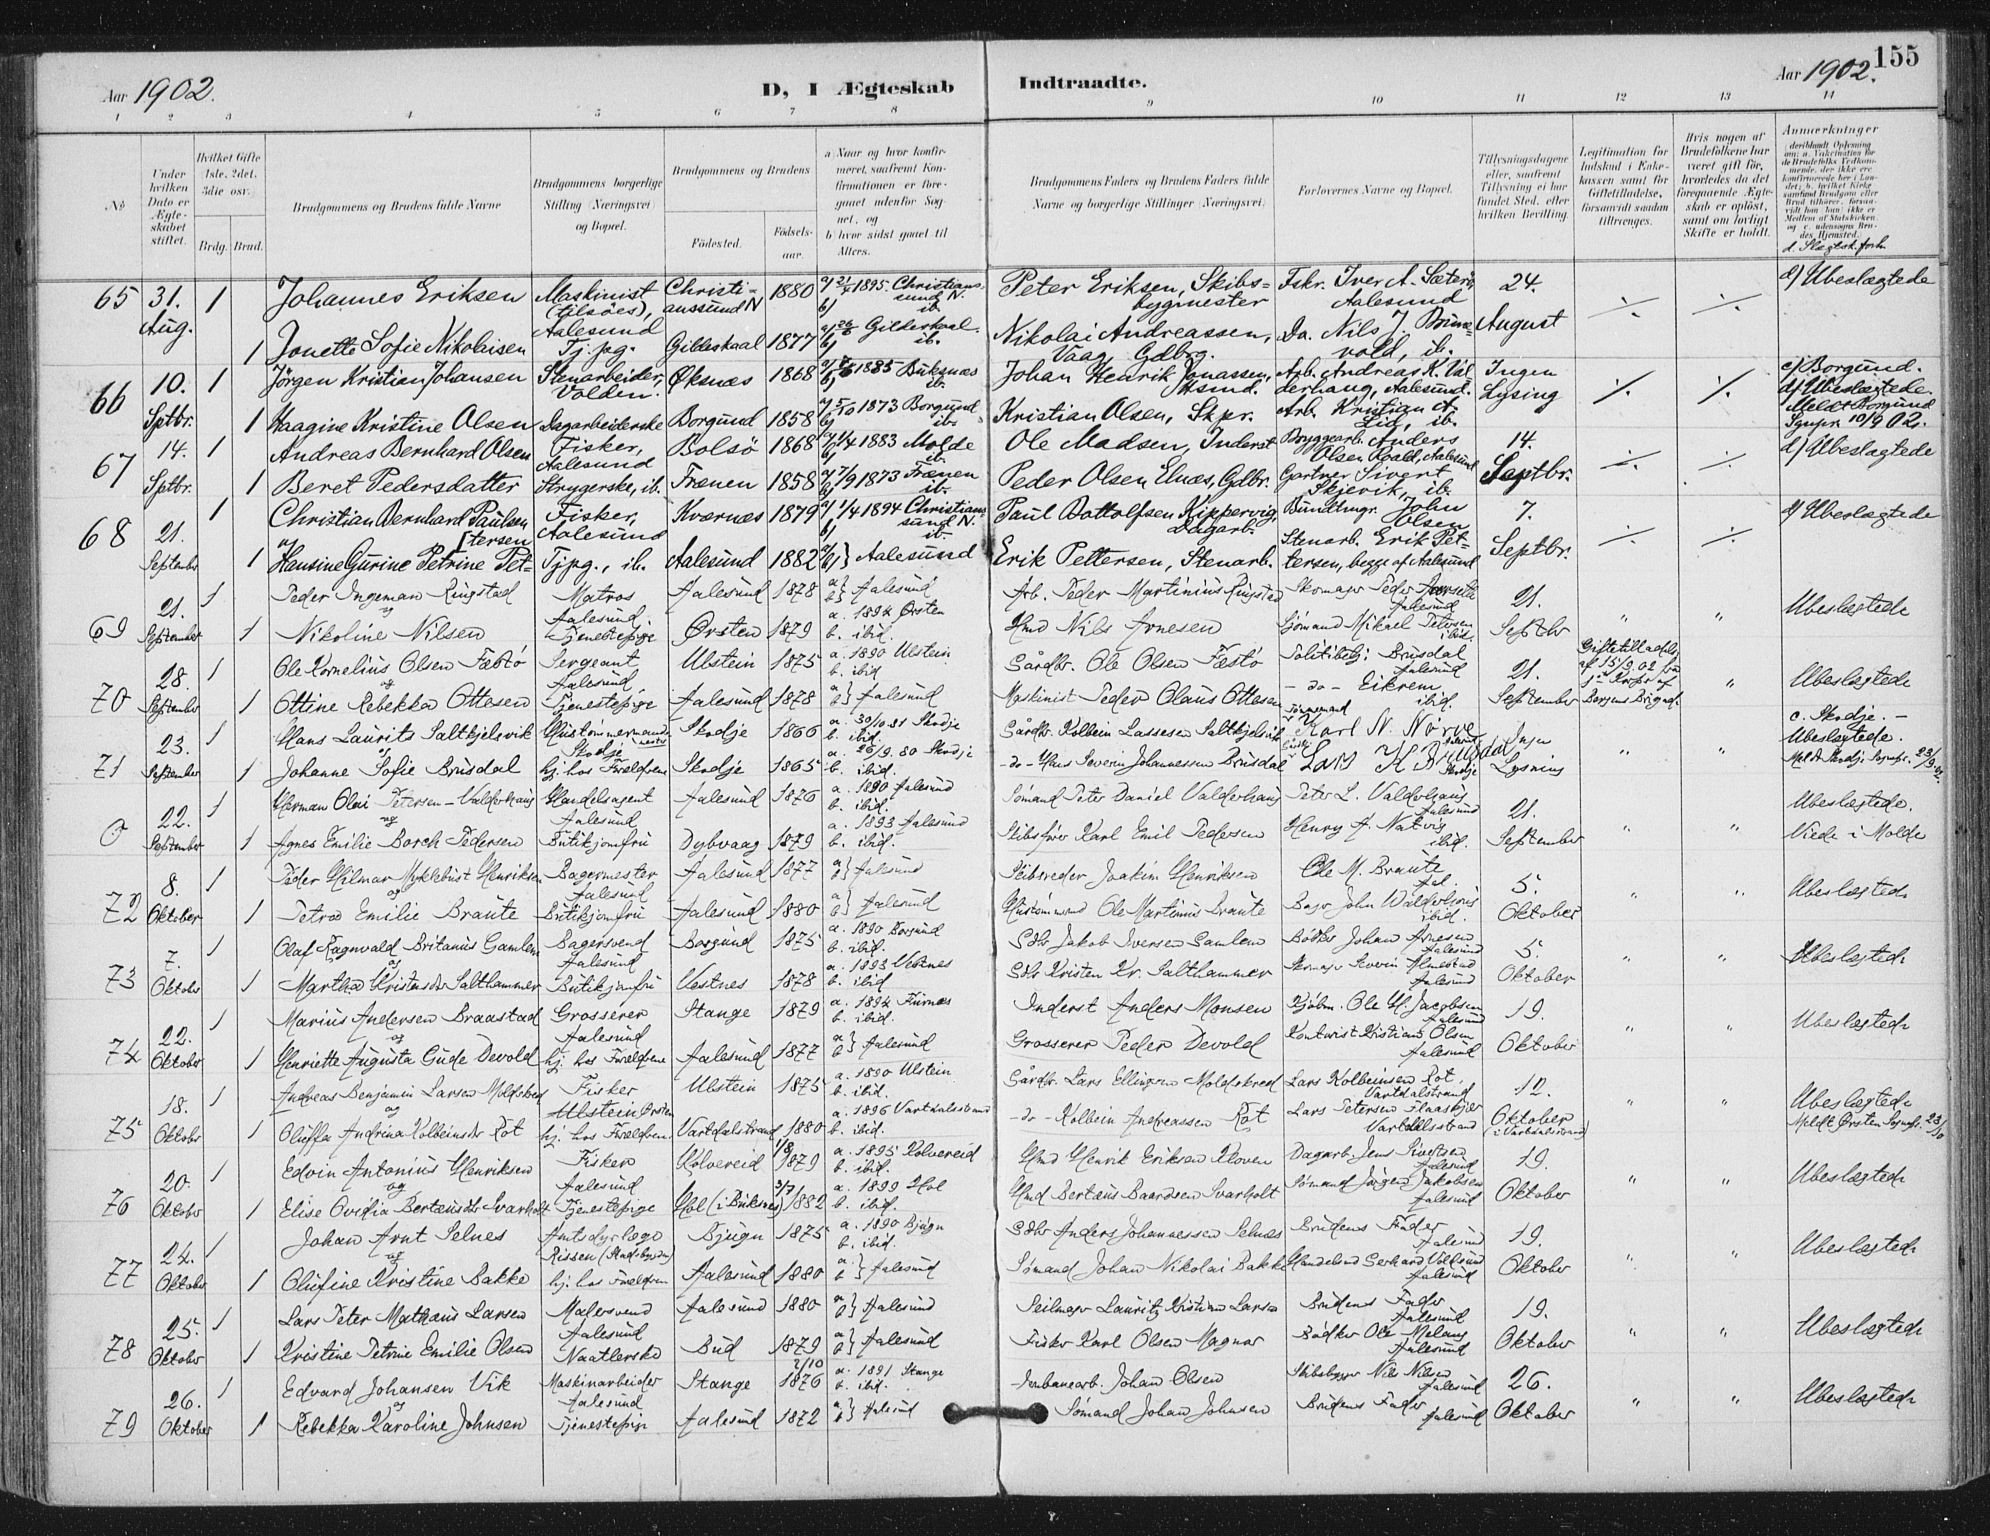 155
Aar 1902.
D, I Ægteskab Indtraadte.
Aar 1902.
1 2 3 4 5 6 7 8 9 10 11 12 13 14
No
Under hvilken Dato er Ægteskabet stiftet.
Hvilket Gifte 1ste, 2det, 3die osv.
Brdg. Brud.
Brudgommens og Brudens fulde Navne
Brudgommens borgerlige Stilling (Næringsvei) og Bopæl.
Brudgommens og Brudens
Födested.
Födselsaar.
a) Naar og hvor konfirmeret, saafremt Konfirmationen er foregaaet udenfor Sognet, og
b) hvor sidst gaaet til Alters.
Brudgommens Faders og Brudens Faders fulde Navne og borgerlige Stillinger (Næringsvei)
Forlovernes Navne og Bopæl.
Tillysningsdagene eller, saafremt Tillysning ei har fundet Sted, efter hvilken Bevilling.
Legitimation for Indskud i Enkekassen samt for Giftetilladelse, forsaavidt saadan tiltrænges.
Hvis nogen af Brudefolkene har været gift før, hvorledes da det foregaaende Ægteskab er oplöst, samt om lovligt Skifte er holdt.
Anmerkninger
65 31. Aug. 1 Johannes Eriksen Maskinist (tilsöes), Aalesund Christiansund N 1880 a) 21/4 1895 Christiansund N. b) ib. Peter Eriksen, Skibsbygmester Fskr. Iver A. Sæterö Aalesund 24. August d) Ubeslægtede
1 Jonette Sofie Nikolaisen Tj.pg. Gildeskaal 1877 Gildeskaal. b) ib. Nikolai Andreassen, Vaag, Gdbrg. Do. Nils J. Brunvold, ib.
66 10. Sptbr. 1 Jörgen Kristian Johansen Stenarbeider, Volden. Øksnæs 1868 1885 Buksnæs b) ib. Johan Henrik Jonassen, Hsmd. Arb. Andreas K. Valderhaug, Aalesund. Ingen Lysing c) Borgund. d) Ubeslægtede Meldt Borgund Sgnpr. 10/9 02.
1 Haagine Kristine Olsen Dagarbeiderske Borgund 1858 a) 5/10 1873 Borgund b) ib. Kristian Olsen, Skpr. Arb. Kristian A. Lid, ib.
67 14. Sptbr. 1 Andreas Bernhard Olsen Fisker, Aalesund Bolsö 1868 1883 Molde b) ib. Ole Madsen, Inderst Bryggearb. Anders Olsen Hvald, Aalesund 14. Septbr. d) Ubeslægtede
1 Beret Pedersdatter Strygerske, ib. Frænen 1858 a) 7/9 1873 Frænen b) ib. Peder Olsen Elnæs, Gdbr. Gartner Sivert Skjevik, ib.
68 21. September 1 Christian Bernhard Paulsen Fisker, Aalesund Kvernæs 1879 a) 1/4 1894 Christiansund N. b) ib. Paul Bottolfsen Kippervig, Dagarb. Bundtmgr. John Olsen 7. Septbr. d) Ubeslægtede
1 Hansine Gurine Petrine Pet=[tersen Tj.pg., ib. Aalesund 1882 a) b) } Aalesund Erik Pettersen, Stenarb. Stenarb. Erik Pettersen, begge af Aalesund
69 21. September 1 Peder Ingeman Ringstad og Matros Aalesund. Aalesund 1878 a b } Aalesund Arb. Peder Martinius Ringstad Skomager Peder Aarseth Aalesund 21. Septbr " " Ubeslægtede
1 Nikoline Nilsen Tjenestepige Ørsten 1879 a. 1894 Ørsten b. ibid. Hmd Nils Arnesen Sjømand Mikael Petersen ibid.
70 28. September 1 Ole Kornelius Olsen Fæstö og Sergeant, Aalesund Ulstein 1875 a. 1890 Ulstein b. ibid Gårdbr. Ole Olsen Fæstö Politibetj. Brusdal Aalesund 21. September Giftetilladelse af 15/9.02 Bergens Brigad. " Ubeslægtede
1 Ottine Rebekka Ottesen Tjenestepige Aalesund 1878 a b } Aalesund Maskinist Peder Olaus Ottesen - do - Eikrem, ibid.
71 23. September 1 Hans Laurits Saltkjelsvik Skodje Skodje 1866 a. 30/10 81 Skodje b. ibid. Gårdbr. Kolbein Lassesen Saltkjelsvik Karl N. Nørve Ingen Lysning " " c. Skodje. - Ubeslægtede. Meldt Skodje Sognepr. 23/9.02.
1 Johanne Sofie Brusdal hj. hos Forældrene Skodje 1865 a. 26/9. 80 Skodje b. ibid. - do - Hans Severin Johannessen Brusdal Lars K Brusdal Skodje
0 22. September 1 Herman Olai Petersen-Valderhaug og Handelsagent Aalesund Aalesund 1876 a. 1890 Aalesund b. ibid. Sømand Peter Daniel Valderhaug Peter L. Valderhaug Aalesund 21. September " " Ubeslægtede. Viede i Molde
1 Agnes Emilie Borch Pedersen Butikjomfru Dybvaag 1879 a. 1893 Aalesund b. ibid. Skibsfører Karl Emil Pedersen Henry A. Natvig ibid.
72 8. Oktober 1 Peder Hilmar Myklebust Henriksen og Bagermester Aalesund Aalesund 1877 a b } Aalesund Skibsreder Joakim Henriksen Ole M. Braute Aal. 5. Oktober " " Ubeslægtede
1 Petra Emilie Braute Butikjomfru Aalesund 1880 a b } Aalesund Ole Martinus Braute Bager John Walderhoug ibid.
73 7. Oktober 1 Olaf Ragnvald Britanus Gamlem og Bagersvend Aalesund Borgund 1875 a. 1890 Borgund b. ibid. Gdbr Jakob Iversen Gamlem Bødker Johan Arnesen Aalesund 5. Oktober " " Ubeslægtede
1 Martha Kristensdtr Salthammer Butikjomfru Vestnes 1878 a. 1893 Vestnes b. ibid Gdbr Kristen Kr. Salthammer Skomager Severin Almestad Aalesund
74 22. Oktober 1 Marius Andersen Braastad og Grosserer Aalesund Stange 1879 a. 1894 Furnæs b. ibid. Inderst Anders Monsen Kjøbm. Ole H. Jacobsen Aalesund 19. Oktober " " Ubeslægtede
1 Henriette Augusta Gude Devold hj. hos Forældrene Aalesund 1877 a b } Aalesund Grosserer Peder Devold Kontorist Kristian Olsen Aalesund
75 18. Oktober 1 Andreas Benjamin Larsen Moldskred og Fisker Ulstein Ørsten Ulstein 1875 a. 1890 Ulstein b. ibid. Gårdbr. Lars Ellingsen Moldskred Lars Kolbeinsen Rot, Vartdalstrand 12. Oktober (i Vartdalstrand) " " Ubeslægtede Meldt Ørsten Sognepr. 23/10
1 Oluffa Andrina Kolbeinsdtr Rot hj. hos Forældrene Vartdalstrand 1880 a. 1896 Vartdalsstrand b. ibid. - do - Kolbein Andreassen Rot Lars Petersen Flaaskjer Vartdalsstrand
76 20. Oktober 1 Edvin Antonius Henriksen og Fisker Aalesund Kolvereid 1/8 1879 a. 1895 Kolvereid b. ibid. Hmd Henrik Eriksen Kloven Dagarb. Jens Sivertsen Aalesund 19. Oktober " " Ubeslægtede
1 Elise Ovidia Bertæusdtr Svarholt Tjenestepige Hol (i Buksnes) 3/7 1882 a. 1899 Hol b. ibid. Hmd Bertæus Baardsen Svarholt Sømand Jørgen Jakobsen Aalesund
77 24. Oktober 1 Johan Arnt Selnes og Amtsdyrlæge Rissen (Stadsbygden) Bjugn 1875 a. 1890 Bjugn b. ibid. Gdbr Anders Johannessen Selnæs Brudens Fader Aalesund 19. Oktober " " Ubeslægtede
1 Olufine Kristine Bakke hj. hos Forældrene Aalesund 1880 a. b } Aalesund Sømand Johan Nikolai Bakke Handelsmd Gerhard Voldsund Aalesund
78 25. Oktober 1 Lars Peter Mathæus Larsen Malersvend Aalesund Aalesund 1880 a b } Aalesund Seilmager Lauritz Kristian Larsen Brudens Fader Aalesund 19. Oktober " " Ubeslægtede
1 Kristine Petrine Emilie Olsen Naatlerske Bud 1879 a b } Aalesund Fisker Karl Olsen Magnor Bødker Ole Melaus Aalesund
79 26. Oktober 1 Edvard Johansen Vik og Maskinarbeider Aalesund Stange 2/10 1876 a. 1891 Stange b. ibid. Jernbanearb. Johan Olsen Skibsbygger Nils Nilsen Aalesund 26. Oktober " " Ubeslægtede
1 Rebekka Karoline Johnsen Tjenestepige Aalesund 1872 a b } Aalesund Sømand Johan Johnsen Brudens Fader Aalesund